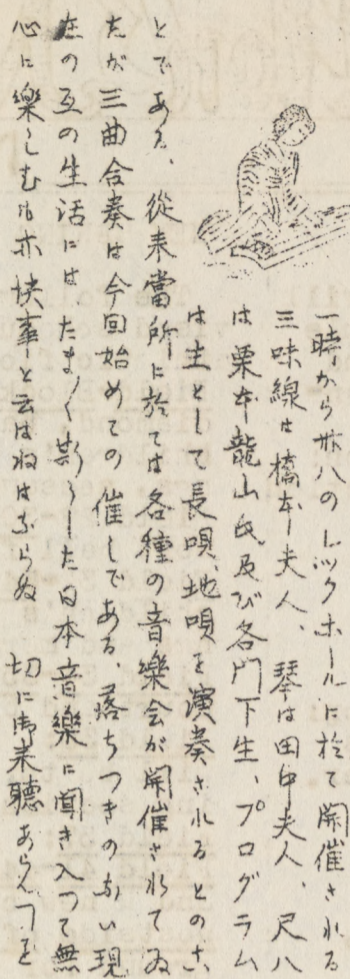 一時から卅八のレックホールに於て開催される
三味線は橋本夫人、琴は田中夫人、尺八
は栗本龍山氏及び各門下生、プログラム
は主として長唄、地唄を演奏されるとのこ
とである、從来當所に於ては各種の音樂会が開催されてゐ
たが三曲合奏は今回始めての催しである、落ちつきのない現
在の互の生活にはたま〱斯うした日本音樂に聞き入つて無
心に樂しむも亦快事と云はねはならぬ 切に御来聽あらんことを